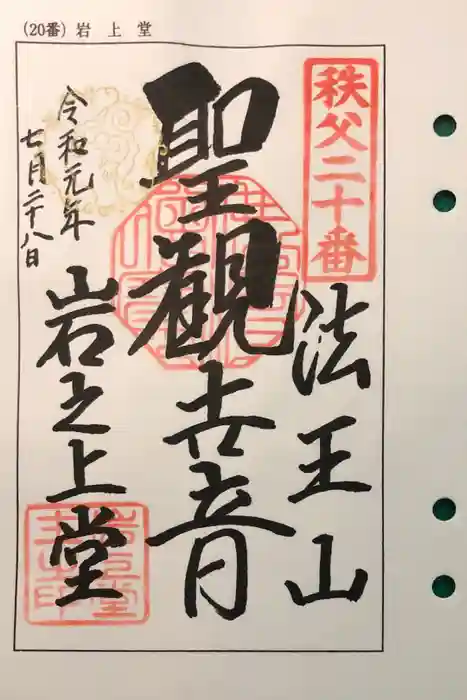 (20番) 岩上堂
秩父二十番
法王山
聖観世音
令和元年
七月二十八日
岩之上堂